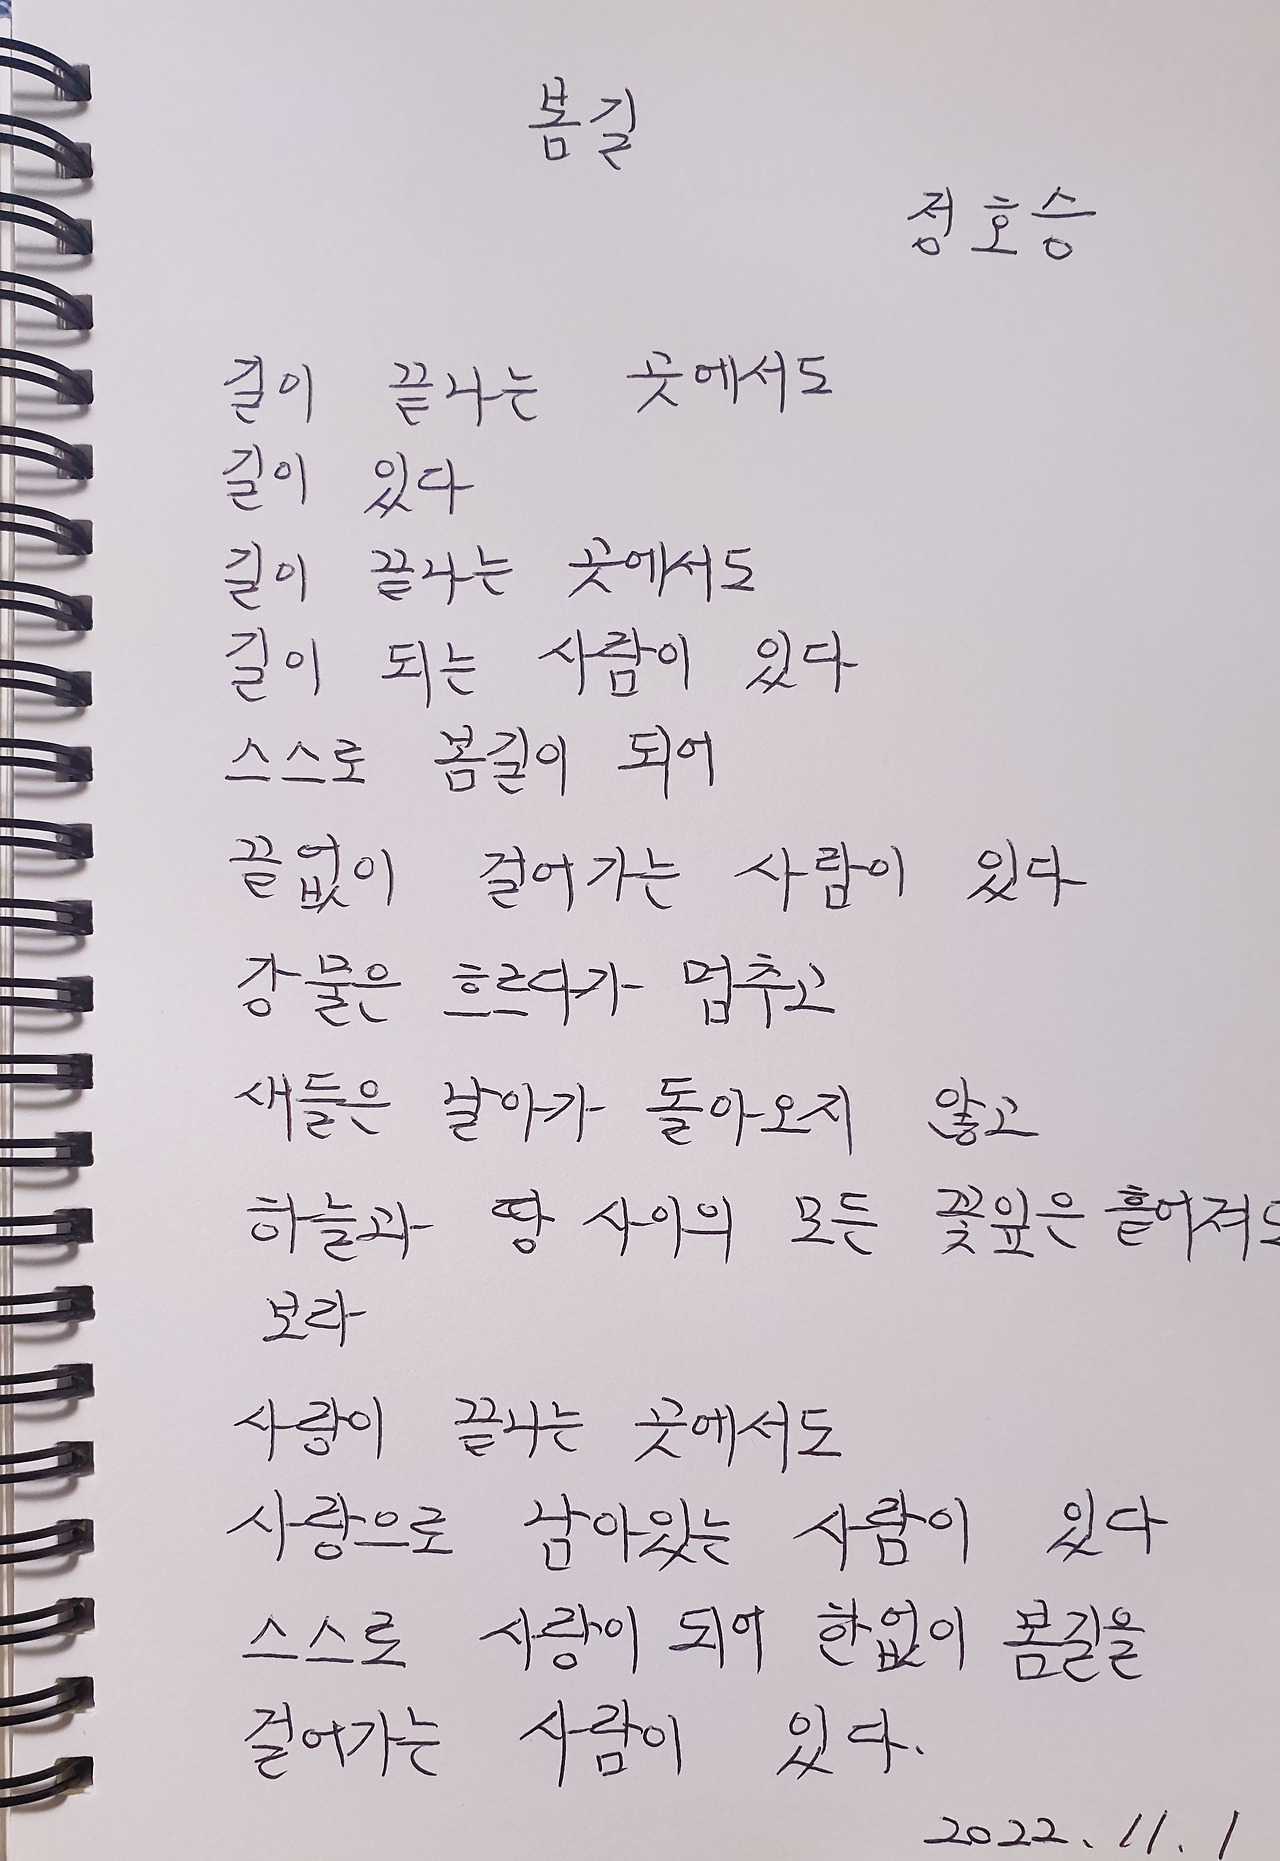 봄길
정호승
길이 끝나는 곳에서도
길이 있다
길이 끝나는 곳에서도
길이 되는 사람이 있다
스스로 봄길이 되어
끝없이 걸어가는 사람이 있다
강물은 흐르다가 멈추고
새들은 날아가 돌아오지 않고
하늘과 땅 사이의 모든 꽃잎은 흩어져도
보라
사랑이 끝나는 곳에서도
사랑으로 남아있는 사람이 있다
스스로 사랑이 되어 한없이 봄길을
걸어가는 사람이 있다.
2022. 11. 1